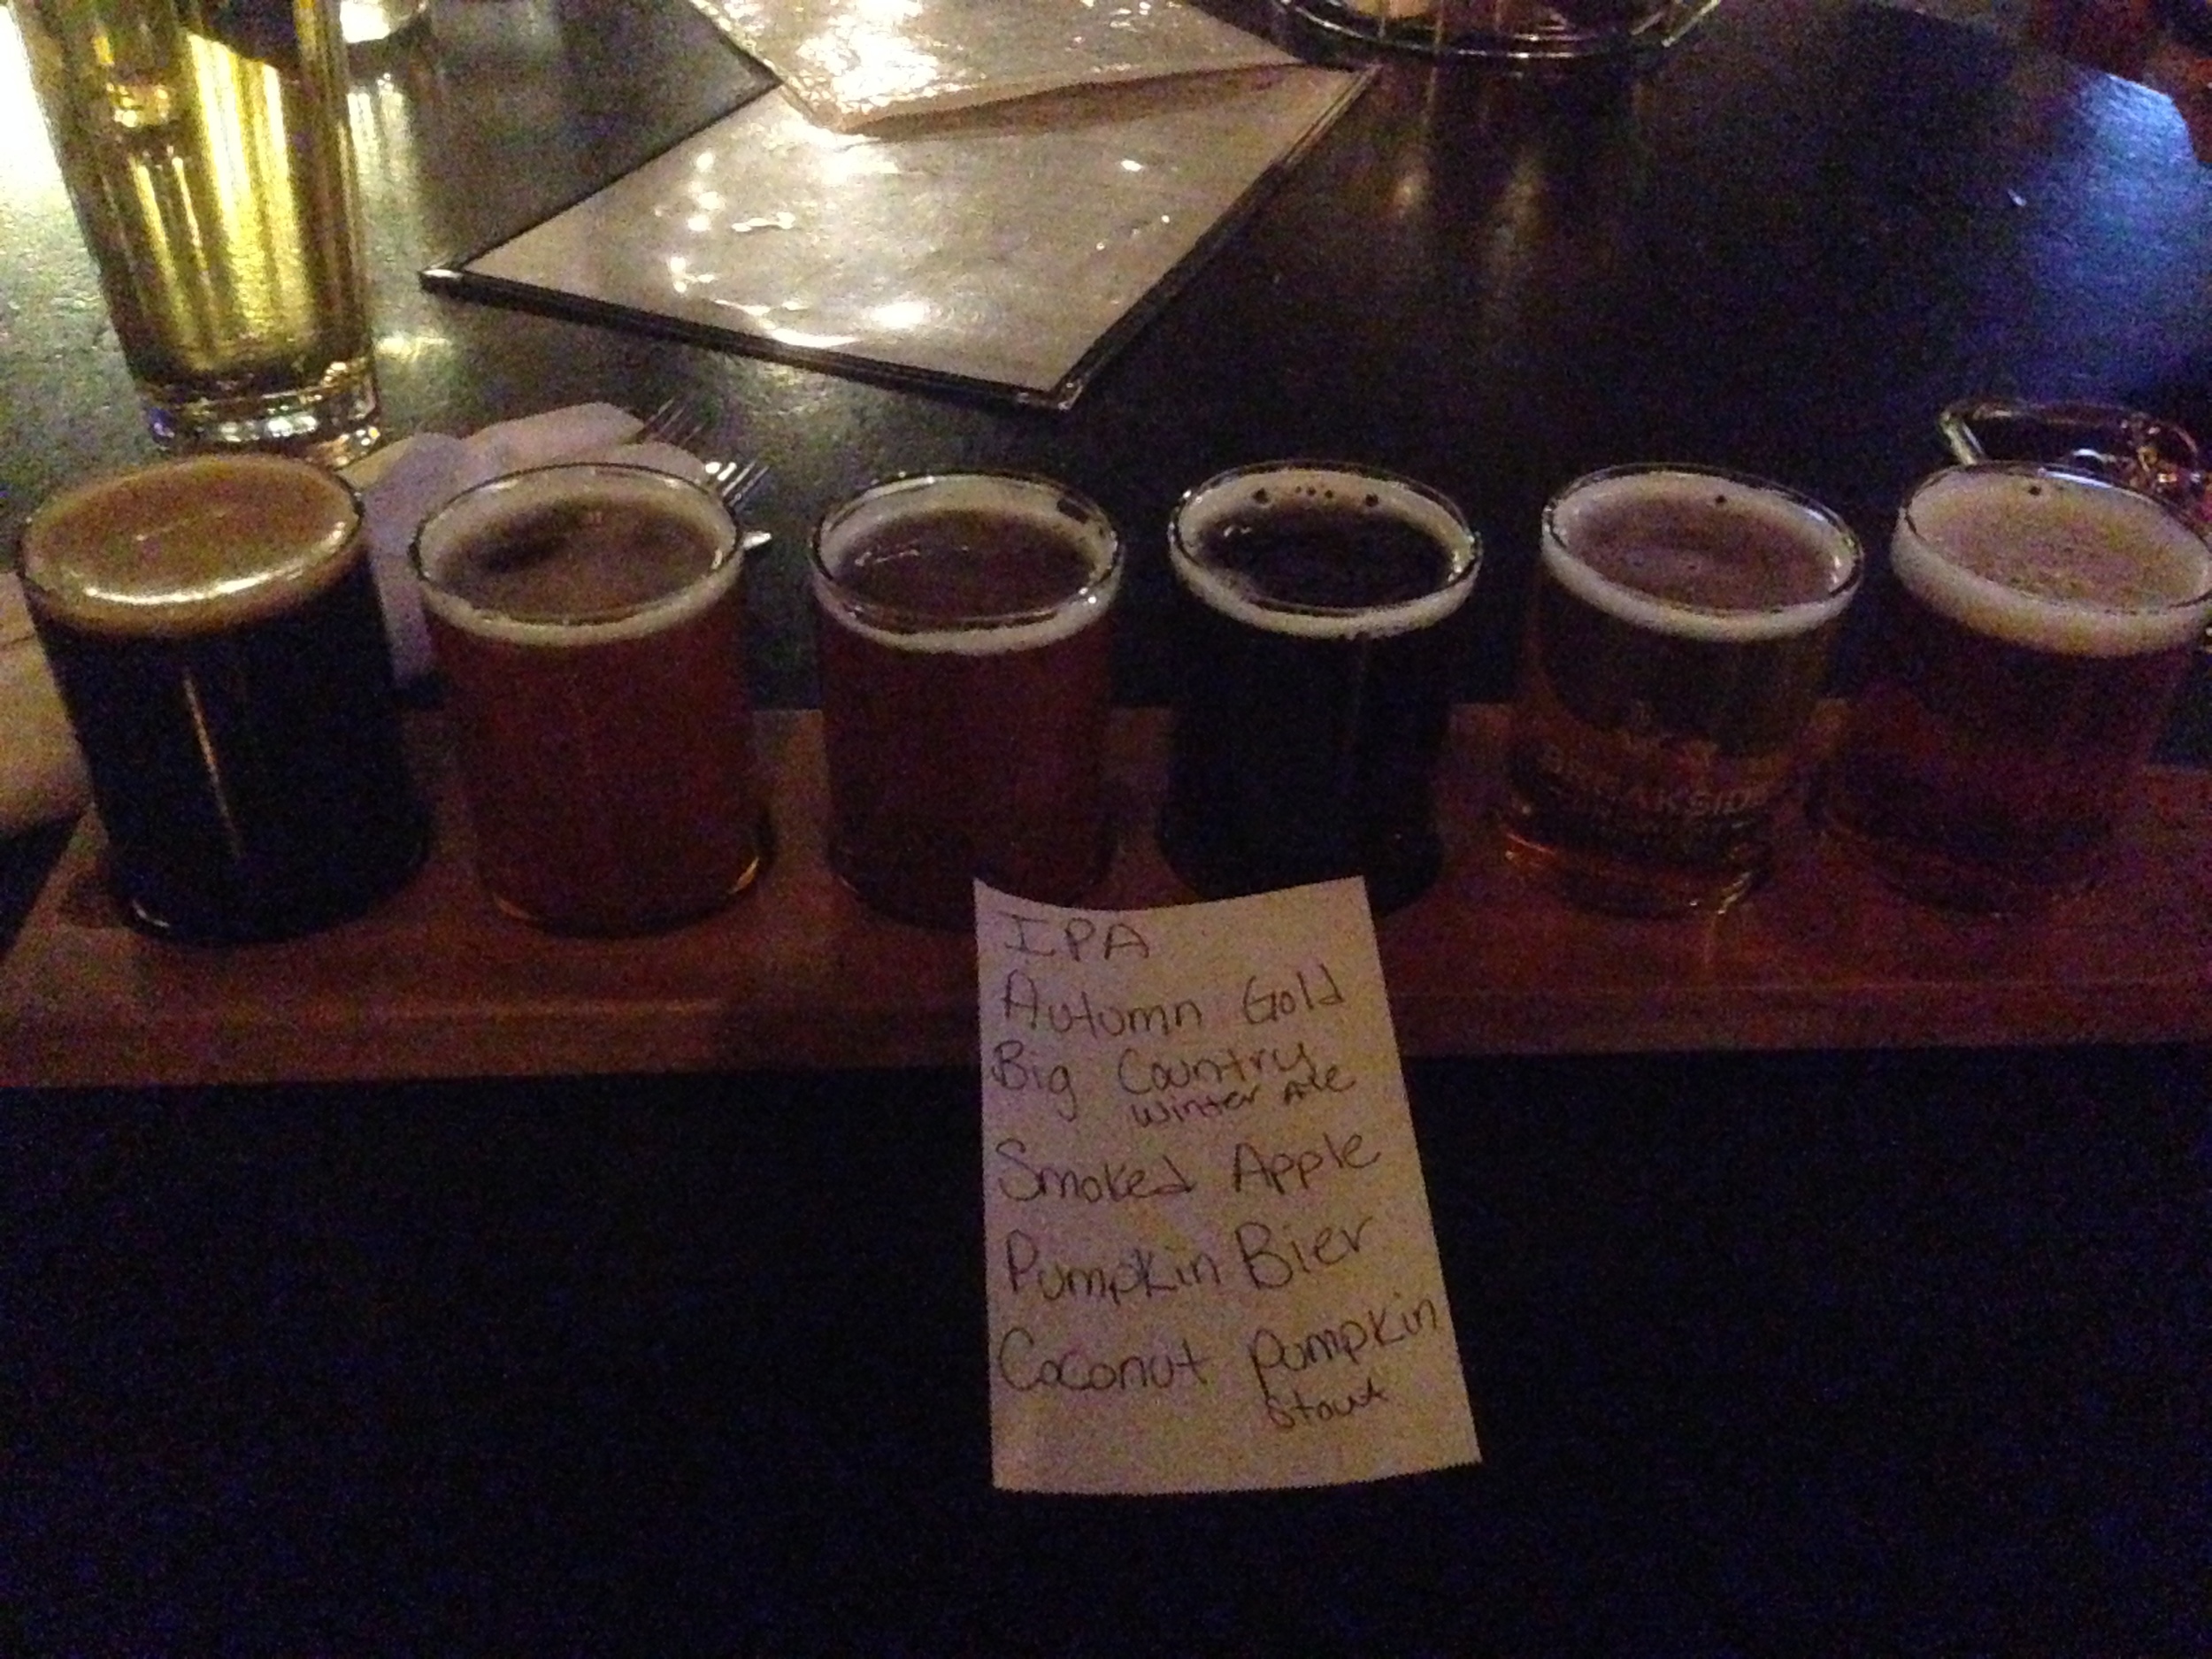 BREAKSIDE
IPA
Autumn Gold
Big Country
Winter Ale
Smoked Apple
Pumpkin Bier
Coconut Pumpkin
Stout